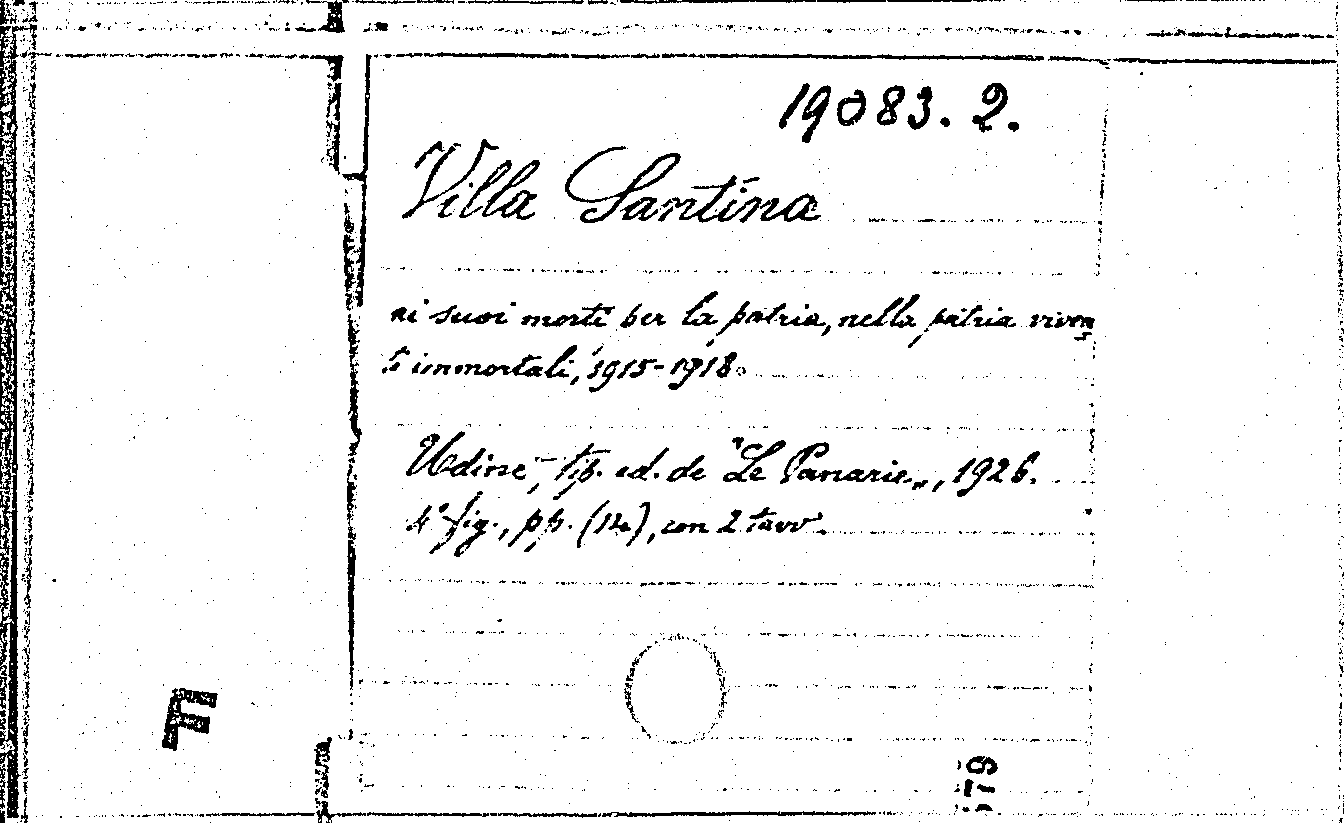 19083. 2.
Villa Santina
ai suoi morti per la patria, nella patria viven
ti immortali, 1915-1918.
Udine, tip. ed. de "Le Panarie", 1926.
4° fig., pp. (14), con 2 tavv.
F